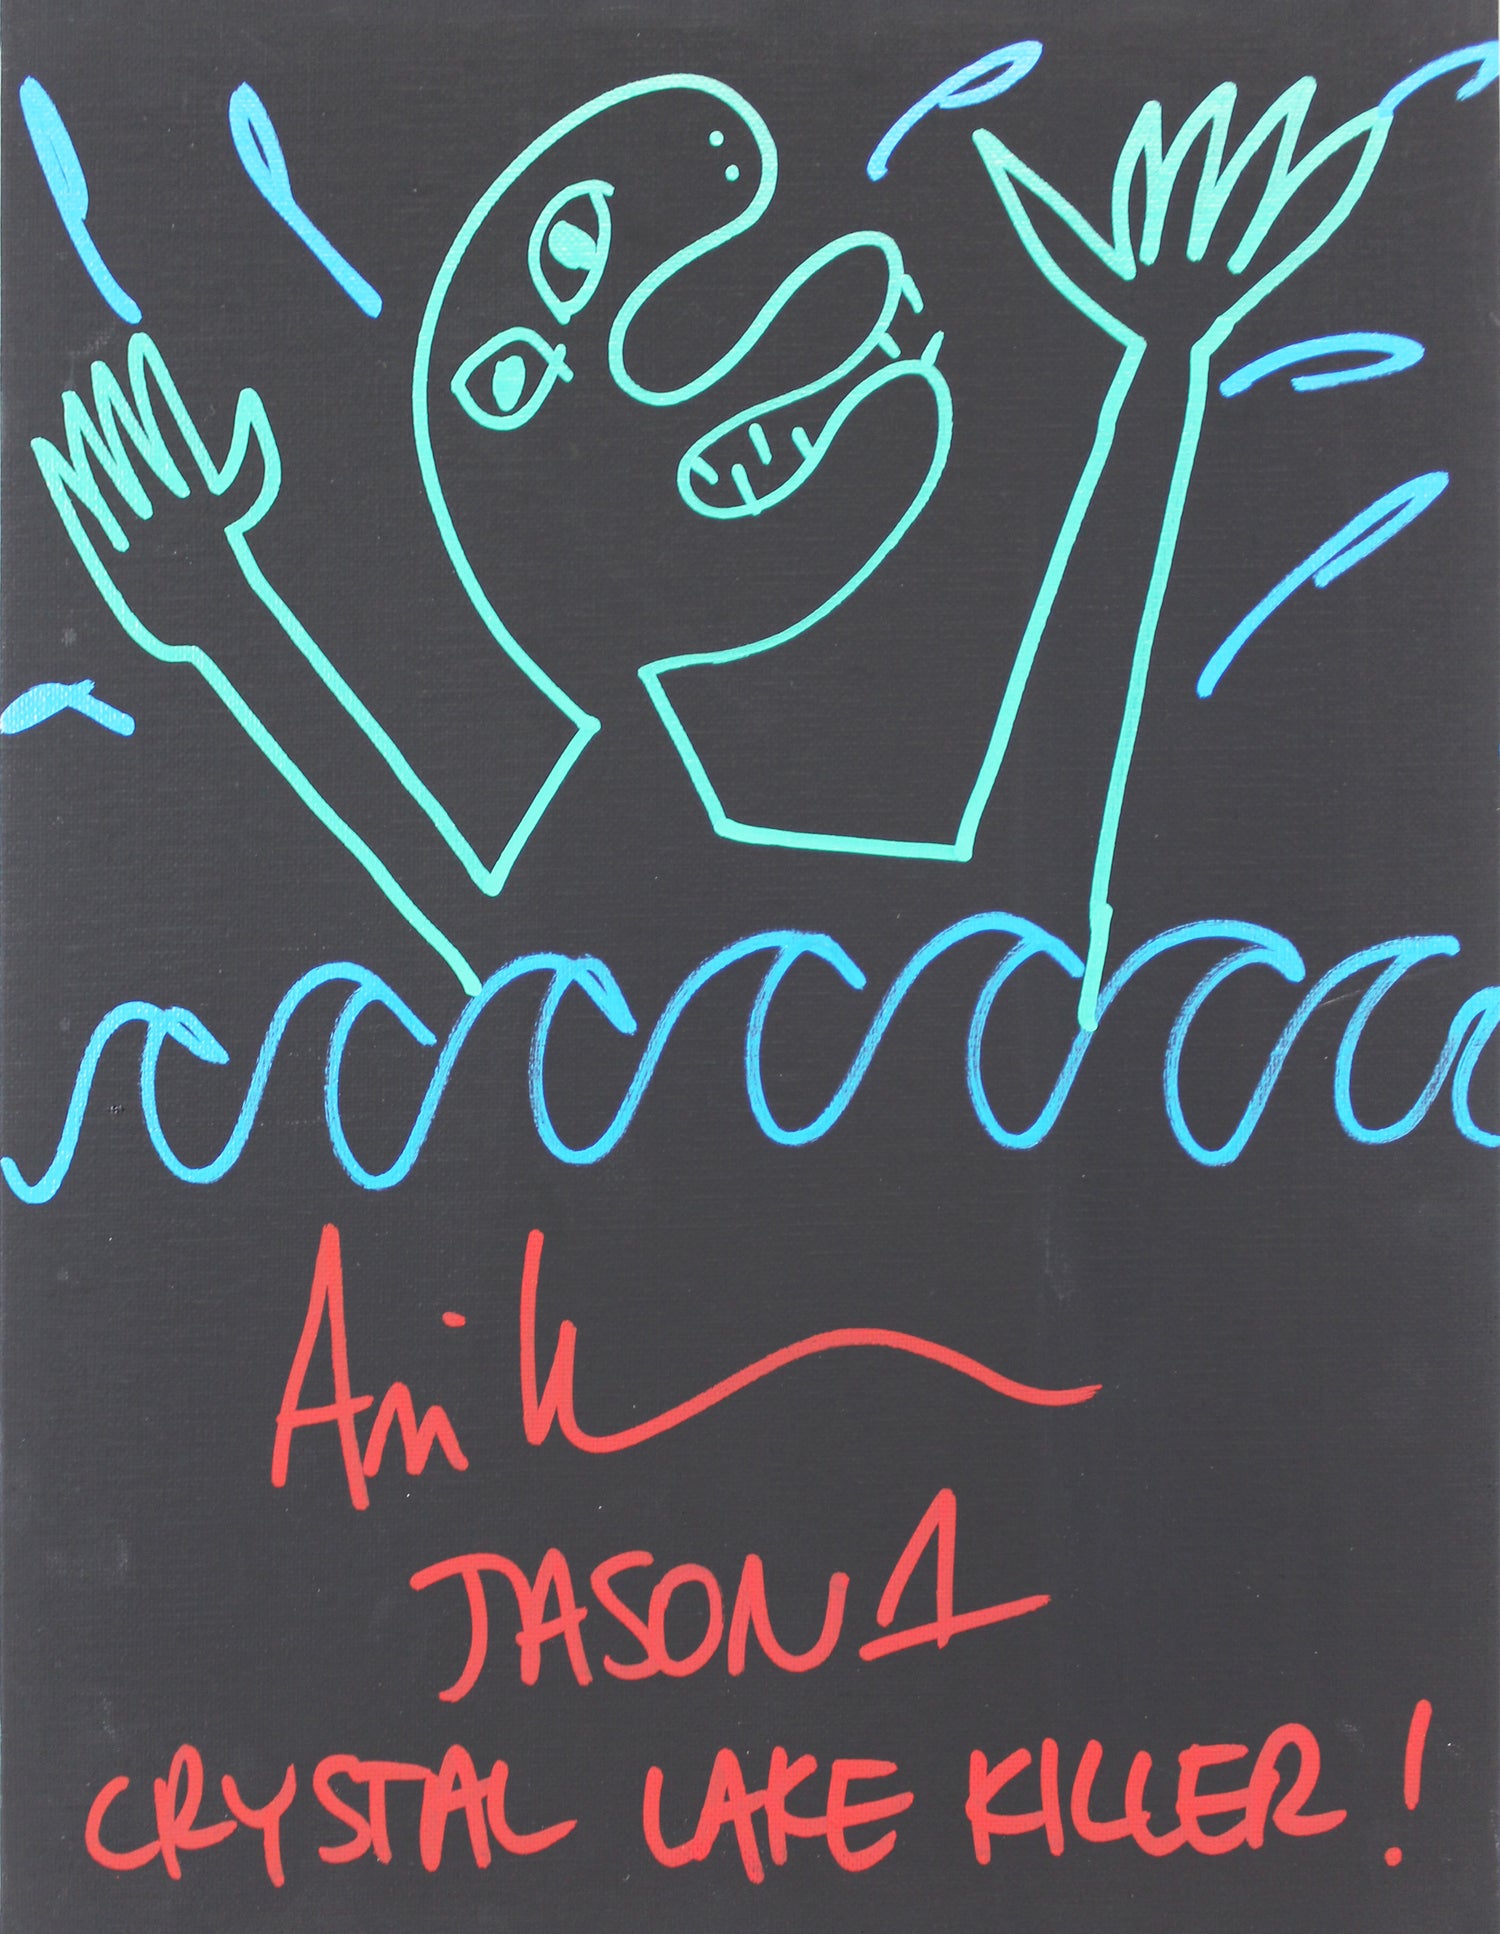 Ari L
JASON 1
CRYSTAL LAKE KILLER!